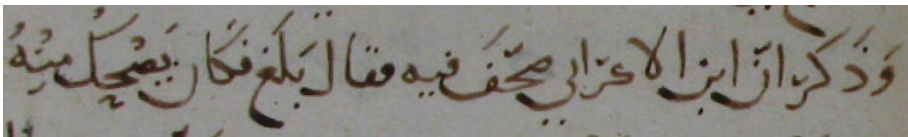 وَذَكَرَ انّ ابن الاعرابي صحّفَ فيه فقال بَلَغ فكان يَضْحكُ مِنْهُ